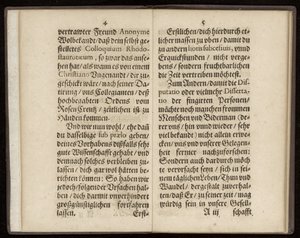 4
vertrawter Freund Anonyme
Wolbekandt / daß dein selbst ge-
stelletes Colloquium Rhodo-
stauroticum, so zwar das anse-
hen hat / als wann es von einem
Christiano Ungenandt / dir zu-
geschickt wäre / nach seiner Da-
tirung / vns Collegianten / deß
hochbegabten Ordens vom
RosenCreutz / zeitlichen ist zu
Händen kommen.
Und wir nun wohl / ehe daß
du dasselbige sub prælo geben /
deines Vorhabens dißfalls sehr
gute Wissenschafft gehabt / vnd
dennoch solches verbleiben zu-
lassen / dich gar wol hätten be-
richten können: So haben wir
jedoch folgender Ursachen hal-
ben / dich darmit vnverhindert
großgünstiglichen fortfahren
lassen.
Erst-
5
Erstlichen / dich hierdurch et-
licher massen zu oben / damit du
zu andern horis subcesivis, vnnd
Erquickstunden / nicht verge-
bens / sondern fruchtbarlichen
die Zeit vertreiben möchtest.
Zum Andern / damit die Dis-
putatio oder vielmehr Disserta-
tio der singirten Personen /
möchte noch manchen frommen
Menschen vnd Biderman (de-
rer vns / hin vnnd wider / sehr
viel bekandt / nicht allein ermun-
dern / vns vnd vnserer Gelegen-
heit ferner nachzuforschen:
Sondern auch dardurch möch-
te vervrsacht seyn / sich in sei-
nem täglichen Leben / Thun vnd
Wandel / dergestalt zuverhal-
ten / daß Er / zu seiner zeit / mag
würdig sein in vnsere Gesell-
A iij
schafft